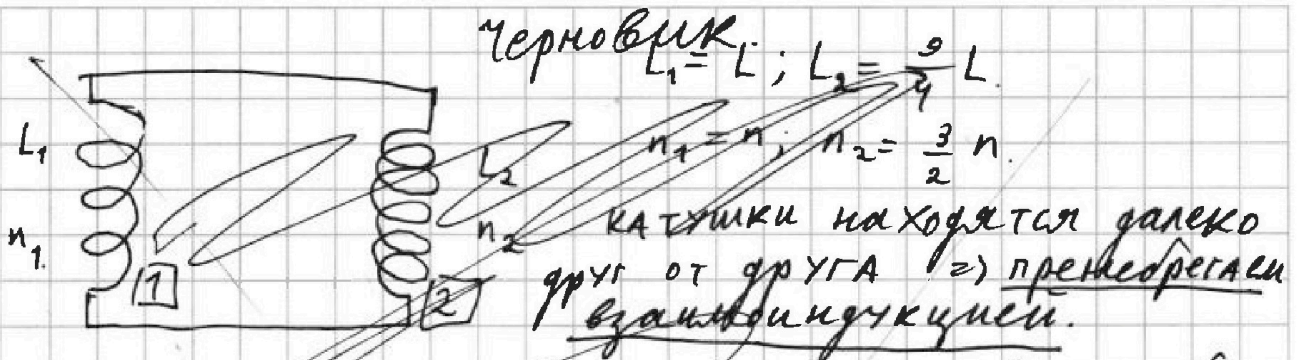 Черновик.
L₁ = L; L₂ = 9/4 L.
L₁
L₂
n₁ = n; n₂ = 3/2 n.
n₁.
n₂
1
2
катушки находятся далеко
друг от друга => пренебрегаем
взаимоиндукцией.